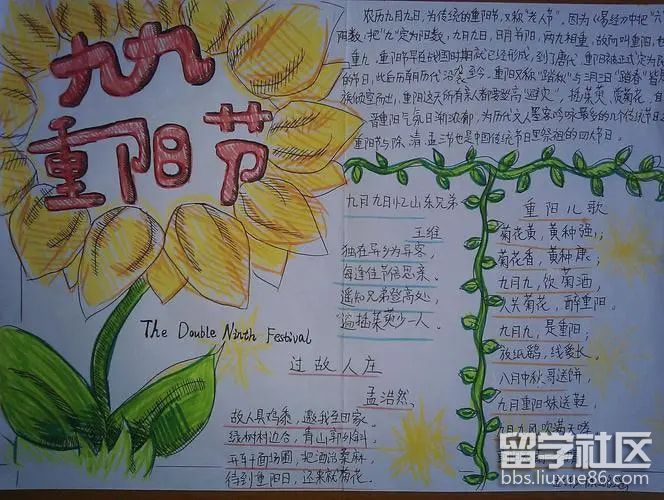 九九
重阳节
农历九月九日,为传统的重阳节,又称"老人节"。因为《易经》中把"六"
阳数,把"九"定为阳数,九月九日,日月并阳,两九相重,故而叫重阳,也
重九,重阳节早在战国时期就已经形成,到了唐代,重阳被正式定为民
的节日,此后历朝历代沿袭至今。重阳又称"踏秋"与三月三日"踏春"皆
族倾室而出,重阳这天所有亲人都要登高"避灾",插茱萸、赏菊花。自
晋重阳气氛日渐浓郁,为历代文人墨客吟咏最多的几个传统节日
重阳节与除、清、盂三节也是中国传统节日里祭祖的四大节日。
九月九日忆山东兄弟
王维
独在异乡为异客,
每逢佳节倍思亲。
遥知兄弟登高处,
遍插茱萸少一人。
重阳儿歌
菊花黄,黄种强;
菊花香,黄种康;
九月九,饮菊酒,
人共菊花,醉重阳。
九月九,是重阳;
放纸鹞,线爱长。
八月中秋哥送饼,
九月重阳妹送鞋,
九月九风吹满天
The Double Ninth Festival
过故人庄
孟浩然
故人具鸡黍,邀我至田家。
绿树村边合,青山郭外斜。
开轩面场圃,把酒话桑麻。
待到重阳日,还来就菊花。
留学社区
bbs.liuxue86.com